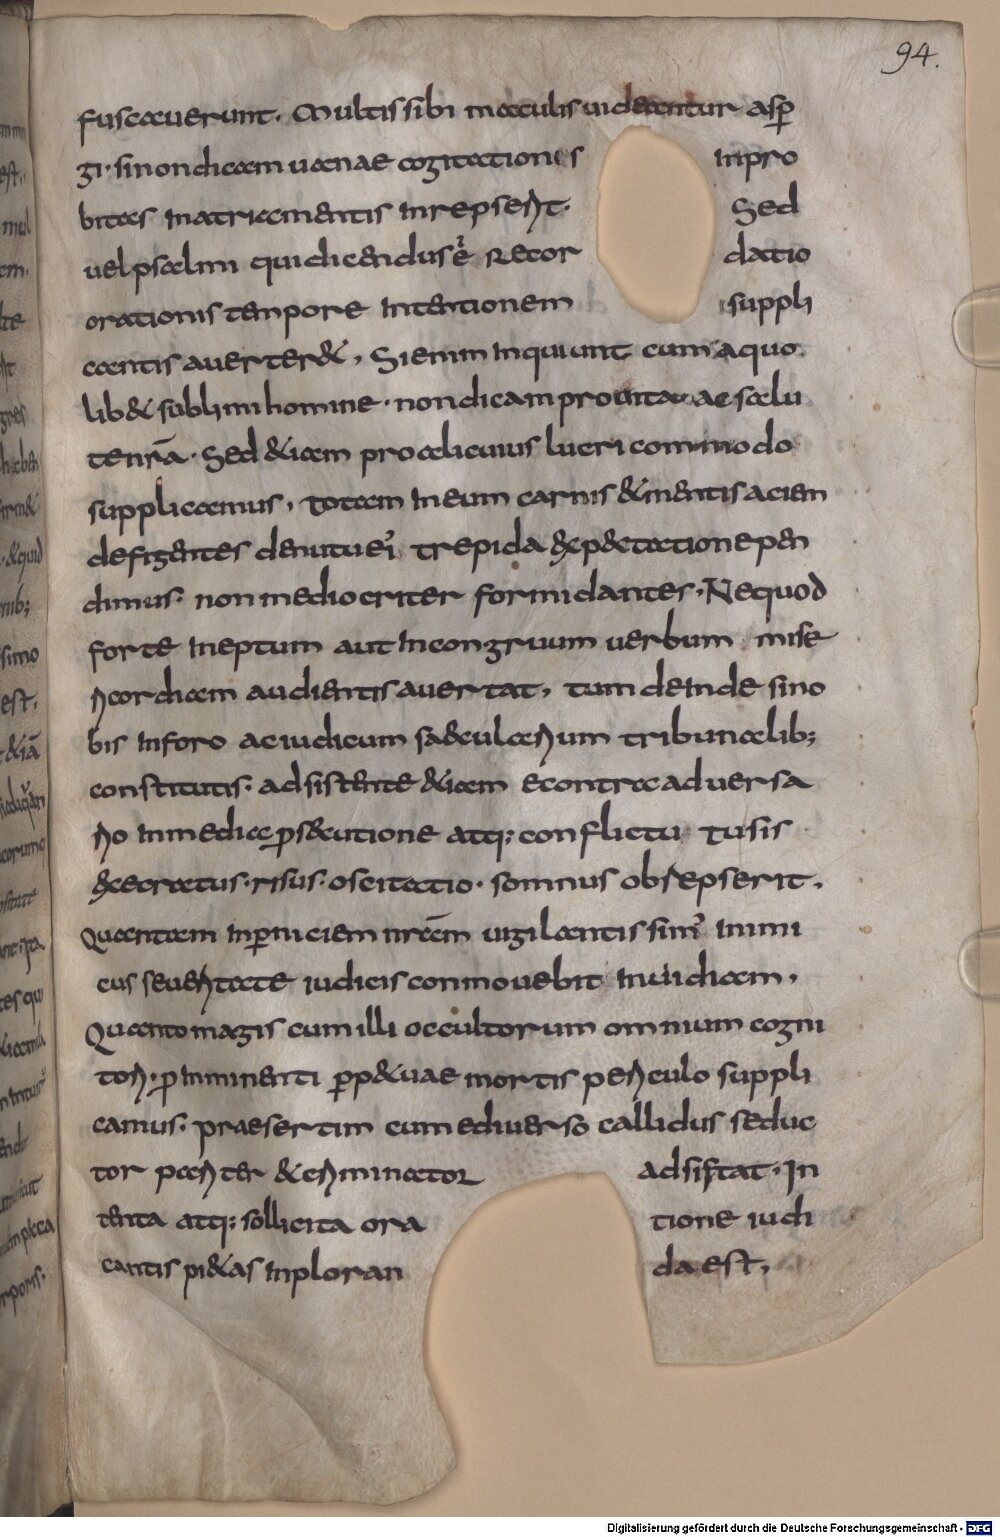 94.
fuscauerunt. Multis sibi maculis uideantur asp̄
gi. si non dicam uanae cogitationes inpro
bitas matri mentis inrepserit. Sed
uel psalmi qui dicendus ē recor datio
orationis tempore intentionem suppli
cantis auerteret, Si enim inquiunt cum a quo
lib& sublimi homine. non dicam pro uita ac salu
te nr̄a. Sed &iam pro alicuius lucri commodo
supplicamus, totam in eum carnis & mentis aciem
defigentes de nutu ei' trepida expectatione pen
dimus. non mediocriter formidantes. Ne quod
forte ineptum aut incongruum uerbum mise
ricordiam audientis auertat, tum deinde si no
bis in foro ac iudicum saecularium tribunalib;
constitutis. adsistente &iam e contra aduersa
rio in media p̄secutione atq; conflictu tusis
excreatus. risus. oscitatio. somnus obrepserit.
Quantam in p̄niciem nr̄am uigilantis semp̄ inimi
cus seueritate iudicis conmouebit inuidiam,
Quanto magis cum illi occultorum omnium cogni
tori. p̄ inminenti p̄p&uae mortis periculo suppli
camus. praesertim cum e diuerso callidus seduc
tor pariter & criminator adsistat. In
tenta atq; sollicita ora tione iudi
cantis pi&as inploran da est,
Digitalisierung gefördert durch die Deutsche Forschungsgemeinschaft - DFG